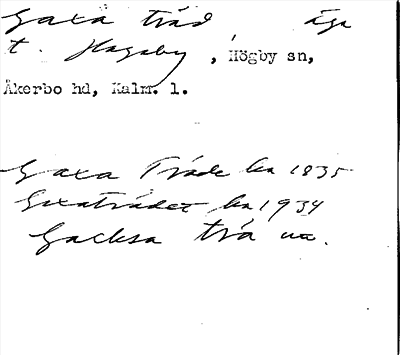 Gaxa träd äga
t. Hagaby, Högby sn,
Åkerbo hd, Kalm. l.
Gaxa Träde ha 1835
Gaxaträdet ha 1934
Gacksa trä ua.